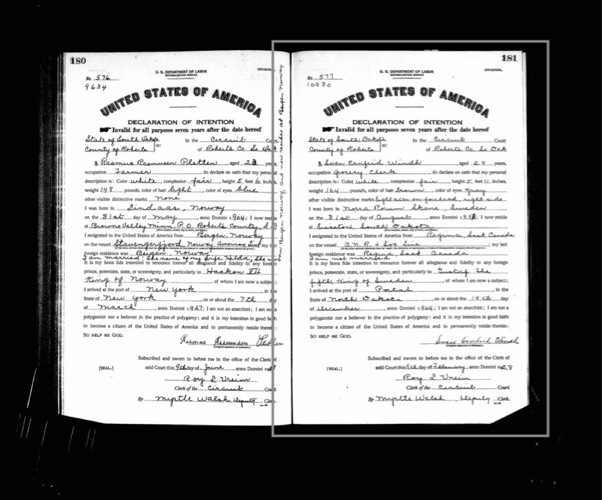 180
U. S. DEPARTMENT OF LABOR
NATURALIZATION SERVICE
No. 576
9634
UNITED STATES OF AMERICA
DECLARATION OF INTENTION
Invalid for all purposes seven years after the date hereof
State of South Dakota
In the Circuit Court
County of Roberts ss: of Roberts Co. So. Dak
I, Rasmus Rasmussen Pletten, aged 23 years,
occupation Farmer, do declare on oath that my personal
description is: Color white, complexion fair, height 5 feet inches,
weight 148 pounds, color of hair light, color of eyes blue
other visible distinctive marks None
I was born in Lindaas, Norway
on the 31st day of May, anno Domini 1904; I now reside
at Browns Valley Minn, P.O. Roberts County, S.D.
I emigrated to the United States of America from Bergen, Norway
on the vessel Stavangerfjord, Norway Americas Line; my last
foreign residence was Bergen, Norway
I am married; the name of my wife is Hilda; she was
It is my bona fide intention to renounce forever all allegiance and fidelity to any foreign
prince, potentate, state, or sovereignty, and particularly to Haakon VII
King of Norway, of whom I am now a subject;
I arrived at the port of New York, in the
State of New York, on or about the 7th day
of March, anno Domini 1927; I am not an anarchist; I am not a
polygamist nor a believer in the practice of polygamy; and it is my intention in good faith
to become a citizen of the United States of America and to permanently reside therein:
SO HELP ME GOD.
Rasmus Rasmussen Pletten
Subscribed and sworn to before me in the office of the Clerk of
[SEAL.] said Court this 9th day of June, anno Domini
Roy L Vreim
Clerk of the Circuit Court.
By Myrtle Walsh, Deputy Clerk
181
U. S. DEPARTMENT OF LABOR
NATURALIZATION SERVICE
No. 577
10930
UNITED STATES OF AMERICA
DECLARATION OF INTENTION
Invalid for all purposes seven years after the date hereof
State of South Dakota
In the Circuit Court
County of Roberts ss: of Roberts Co. So. Dak
I, Sven Enfrid Windh, aged years,
occupation Grocery Clerk, do declare on oath that my personal
description is: Color white, complexion fair, height 5 feet 11 inches,
weight 164 pounds, color of hair brown, color of eyes gray
other visible distinctive marks light scar on forehead, right side
I was born in Skone, Sweden
on the 31st day of August, anno Domini; I now reside
at Sisseton South Dakota
I emigrated to the United States of America from Regina, East Canada
on the C.N.R. + Soo Line; my last
foreign residence was Regina East Canada
I am not married
It is my bona fide intention to renounce forever all allegiance and fidelity to any foreign
prince, potentate, state, or sovereignty, and particularly to Gustaf the
fifth, King of Sweden, of whom I am now a subject;
I arrived at the port of Portal, in the
State of North Dakota, on or about the 19th day
of December, anno Domini 1926; I am not an anarchist; I am not a
polygamist nor a believer in the practice of polygamy; and it is my intention in good faith
to become a citizen of the United States of America and to permanently reside therein:
SO HELP ME GOD.
Sven Enfrid Windh
Subscribed and sworn to before me in the office of the Clerk of
[SEAL.] said Court this 9th day of February, anno Domini 1928
Roy L Vreim
Clerk of the Circuit Court.
By Myrtle Walsh, Deputy Clerk